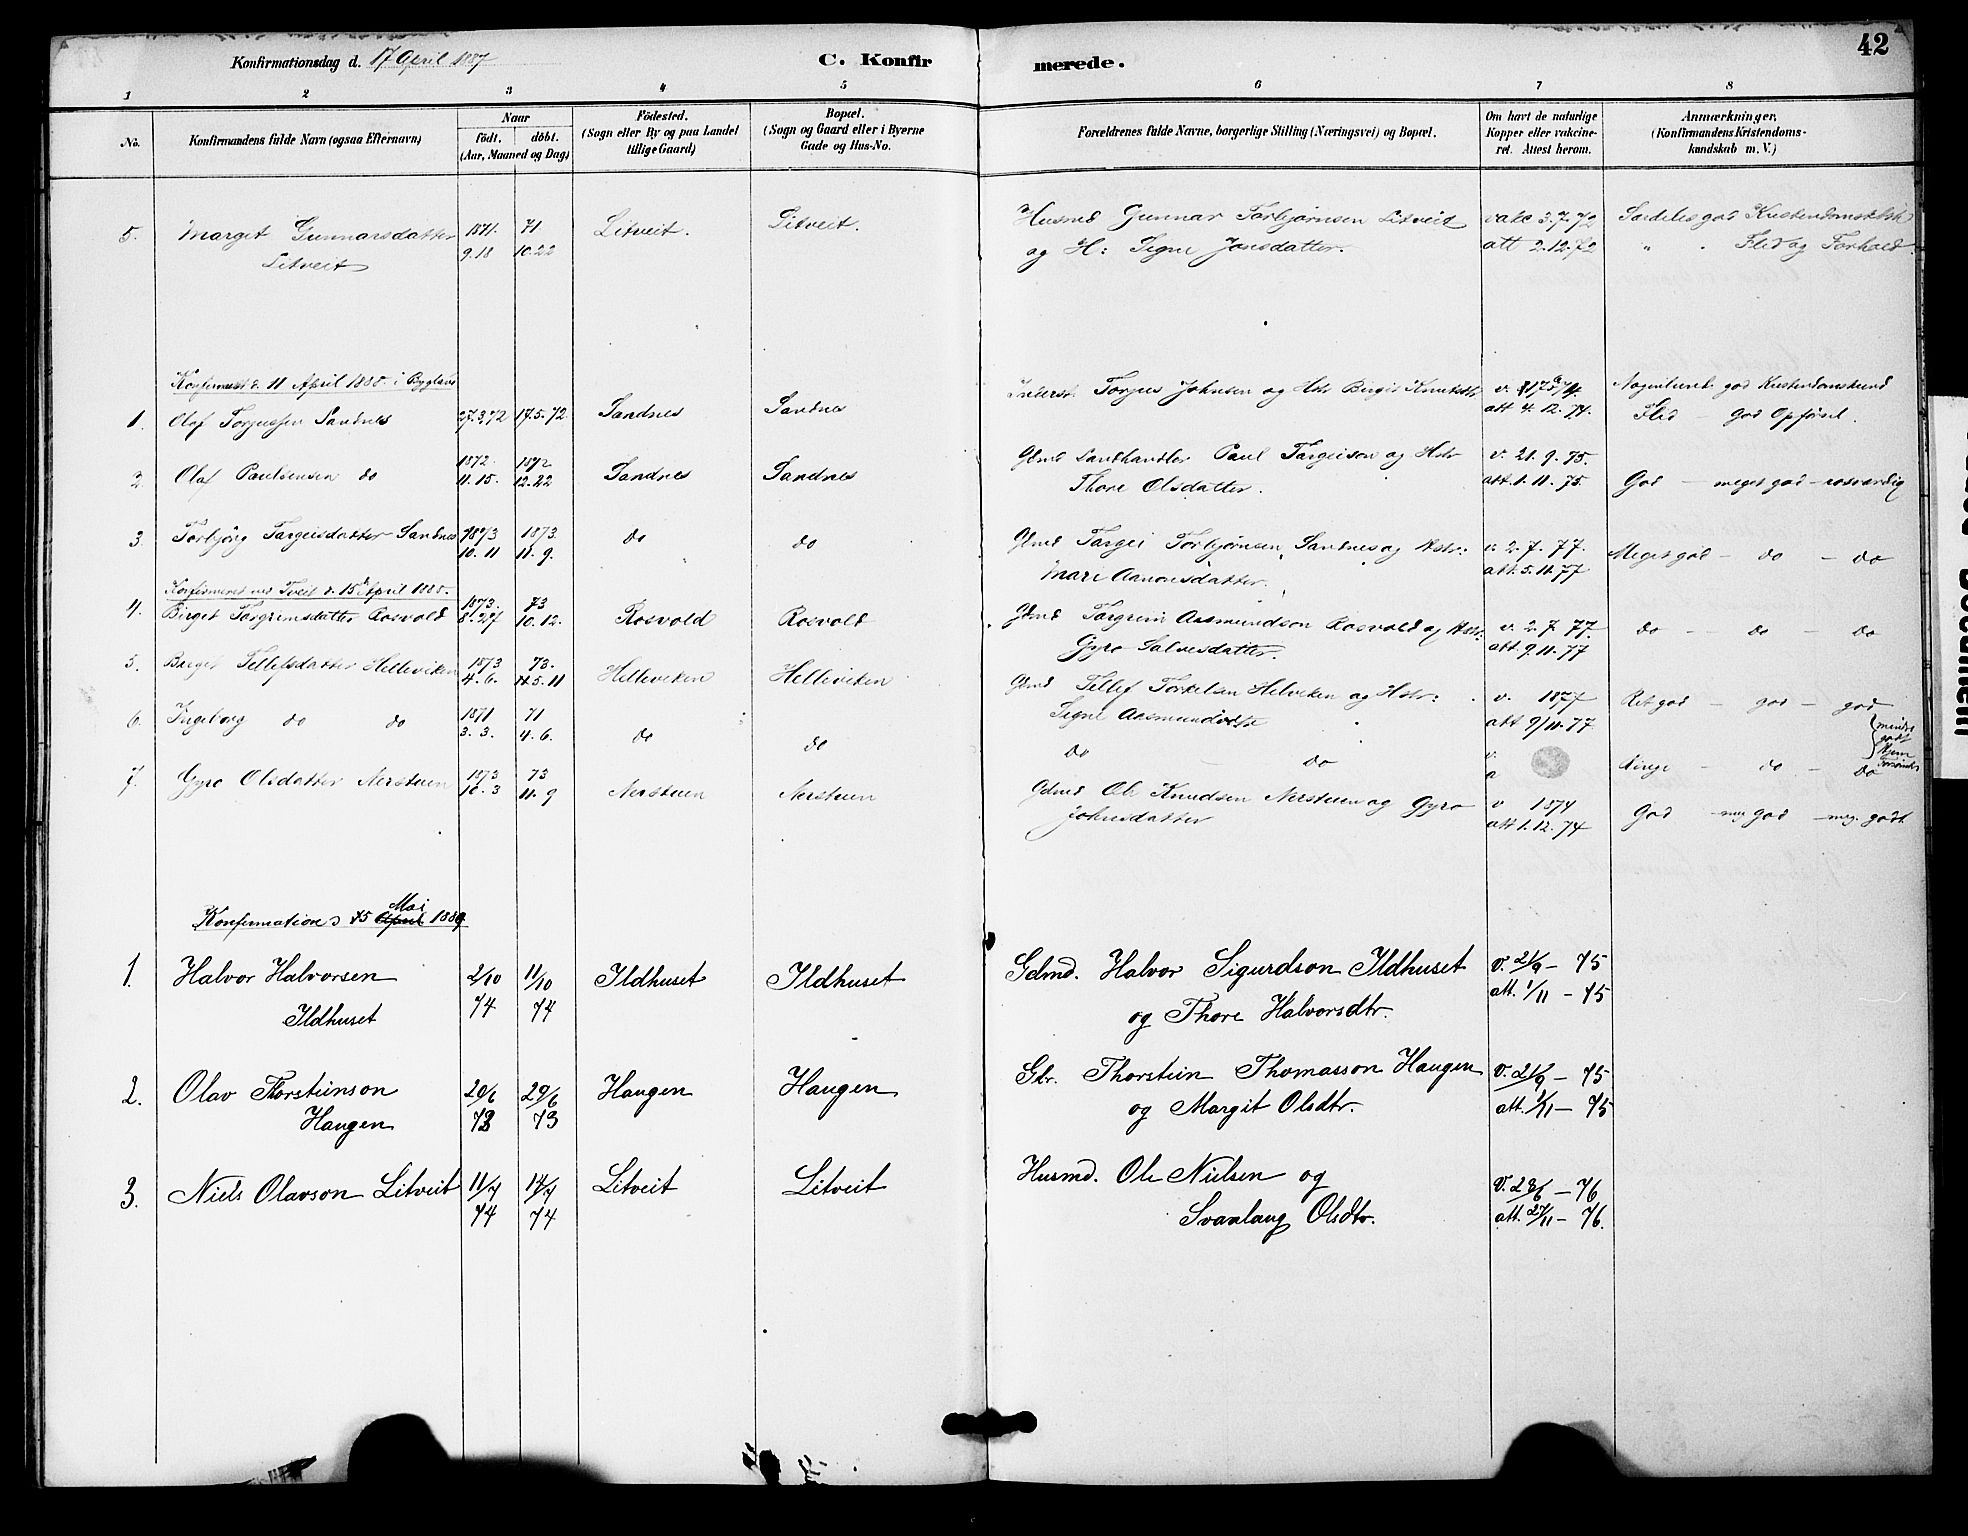 42
Konfirmationsdag d. 17 April 1887
C. Konfirmerede.
1 2 3 4 5 6 7 8
No.
Konfirmandens fulde Navn (ogsaa Efternavn)
Naar
födt. döbt.
(Aar, Maaned og Dag)
Födested.
(Sogn eller By og paa Landet
tillige Gaard)
Bopæl.
(Sogn og Gaard eller i Byerne
Gade og Hus-No.
Forældrenes fulde Navne, borgerlige Stilling (Næringsvei) og Bopæl.
Om havt de naturlige
Kopper eller vakcine-
ret. Attest herom.
Anmærkninger,
(Konfirmandens Kristendoms-
kundskab m. V.)
5. Marget Gunnarsdatter 1871. 71 Litveit. Litveit. Husmd Gunnar Torbjørnsen Litveid vakc 3.7.72 god
Litveit 9.18 10.22 og H: Signe Jonsdatter. att 2.12.72 " Flid og Forhold.
Konfirmeret d. 11 April 1888. i Bygland
1. Olaf Torjussen Sandnes 27.3.72 17.5.72 Sandnes Sandnes Torjus Johnsen og Hstr Birgit att 4.12.74. Nogenlunde god
Flid - god Opførsel.
2. Olaf Paulsensen do 1872. 1872 Sandnes Sandnes Gdmd Landhandler Paul Targeison og Hstr v. 21.9.75.
11.15. 12.22 Thore Olsdatter. att. 1.11.75. God - meget god - rosværdig
3. Torbjörg Targeisdatter Sandnes 1873 1873. do do Gdmd Targei Torbjørnsen Sandnes og Hstr: v. 2.7.77. Meget god - do - do
10.11 11.9. Mari Aanonsdatter. att. 5.11.77
Konfirmeret ved Tveit d. 15 April 1888.
4. Birget Targrimsdatter Rosvold 1873. 73 Rosvold Rosvold Gdmd Targrim Aasmundson Rosvold og Hstr: v. 2.7.77. do - do - do
8.27 10.12. Gyro Salvesdatter. att 9.11.77
5. Birget Tellefsdatter Helleviken 1873 73. Helleviken Helleviken Gdmd Tellef Torkelsen Helviken og Hstr: v. 1877 Ret god - god - god
4.6. 5.11 Signe Aasmundsdtr att 9/11.77
6. Ingeborg do do 1871 71 do do do do v. Ringe - do - do
3.3. 4.6. a
mindre
godt
Hjem
7. Gyro Olsdatter Nerstuen 1873 73 Nerstuen Nerstuen Gdmd Ole Knudsen Nerstuen og Gyro v 1874 God - meg god - meg. godt
10.3 11.9 Johnsdatter att 1.12.74
Konfirmation d 15 Mai 1889
1. Halvor Halvorsen 2/10 11/10 Ildhuset Ildhuset Gdmd. Halvor Sigurdson Ildhuset v. 21/9 - 75
Ildhuset 74 74 og Thore Halvorsdtr. att. 1/11 - 75
2. Olav Thorsteinson 20/6 29/6 Haugen Haugen Gbr. Thorstein Thomasson Haugen v. 21/9 - 75
Haugen 73 73 og Margit Olsdtr. att. 1/11 - 75
3. Niels Olavson Litveit 11/7 14/7 Litveit Litveit Husmd. Ole Nielsen og v. 28/6 - 76
74 74 Svanlaug Olsdtr. att. 27/11 - 76.